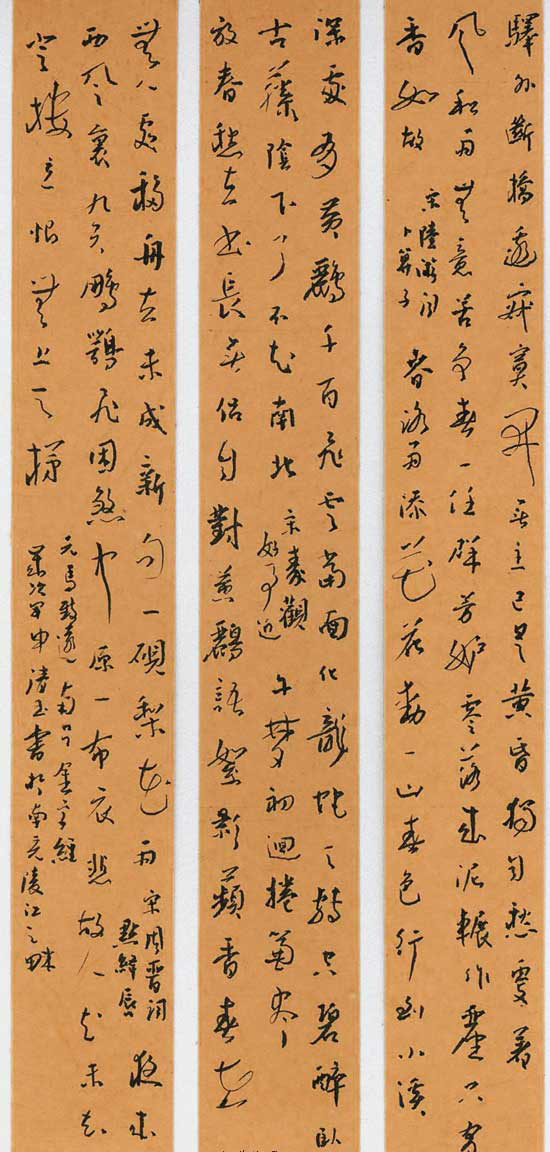 驛外斷橋邊寂寞開無主已是黃昏獨自愁更著
風和雨無意苦爭春一任群芳妒零落成泥輾作塵只有
香如故
宋陸游词
卜算子
春路雨添花花動一山春色行到小溪
深處有黃鸝千百飛雲當面化龍蛇夭轉空碧醉臥
古藤陰下了不知南北
宋秦觀
好事近
午夢初迴捲簾盡
放春愁去晝長無侶自對黃鸝語絮影蘋香春在
無人處移舟去未成新句一硯梨花雨
宋周晋词
點絳唇
夜來
西風裏九天鵬鶚飛困煞中原一布衣悲故人知未知
登樓意恨無上天梯
元馬致遠南呂金字經
歲次甲申清玉書於南充陵江之畔